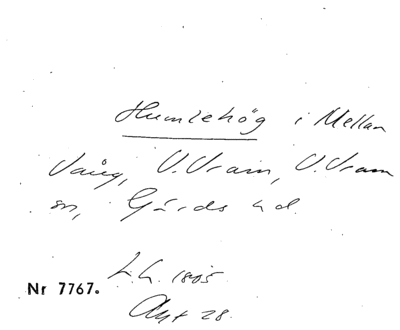 Humlehög i Mellan
Vång, V. Vram, V. Vram
sn, Gärds hd.
L.h. 1805
Akt 28.
Nr 7767.